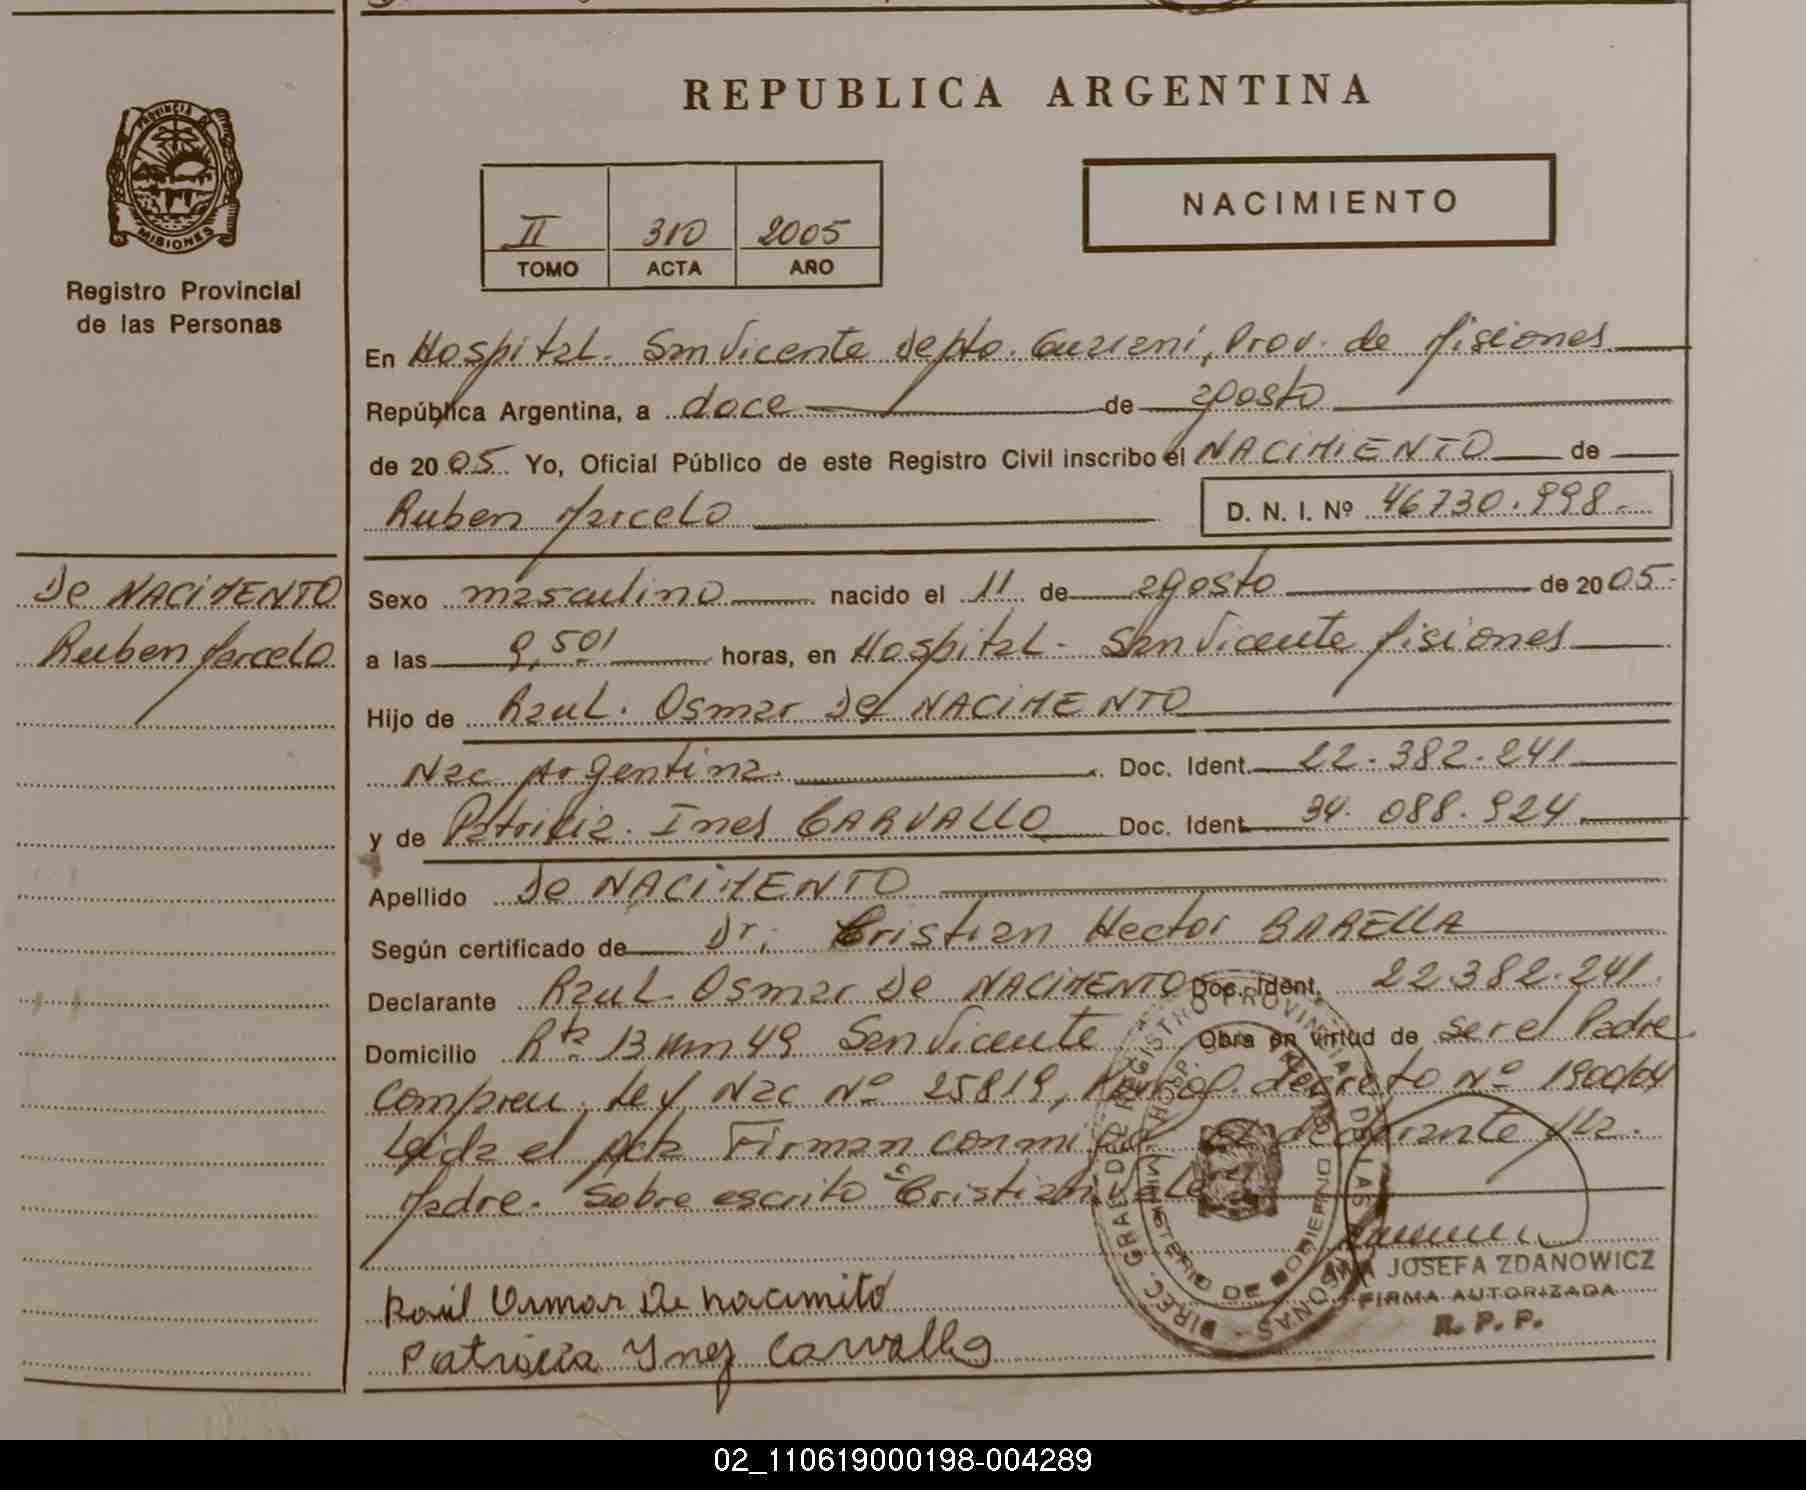 REPUBLICA ARGENTINA
PROVINCIA DE
MISIONES
Registro Provincial
de las Personas
II 310 2005
TOMO ACTA AÑO
NACIMIENTO
En Hospital. San Vicente Depto. Guarani, Prov. de Misiones
República Argentina, a doce de agosto
de 2005 Yo, Oficial Público de este Registro Civil inscribo el NACIMIENTO de
Ruben Marcelo D. N. I. Nº 46730.998.-
De NACIMENTO
Ruben Marcelo
Sexo masculino nacido el 11 de agosto de 2005.
a las 9,50' horas, en Hospital - San Vicente Misiones
Hijo de Raul. Osmar De NACIMENTO
Nac Argentina. Doc. Ident. 22.382.241
y de Patricia. Ines CARVALLO Doc. Ident. 34.088.924
Apellido De NACIMENTO
Según certificado de Dr. Cristian Hector BARELLA
Declarante Raul Osmar De NACIMENTO Doc. Ident. 22.382.241.
Domicilio Rta 13 Km 49 San Vicente Obra en virtud de ser el Padre
Ley Nac Nº 25819, decreto Nº 1900/04
Leida el Acta Firman conmigo el declarante y la
Madre. Sobre escrito "Cristian" vale
Raúl Osmar De nacimito
Patricia Ynez Carvallo
ANA JOSEFA ZDANOWICZ
FIRMA AUTORIZADA
R. P. P.
DIREC. GRAL. DEL REGISTRO PROVINCIAL DE LAS PERSONAS
MINISTERIO DE GOBIERNO
02_110619000198-004289